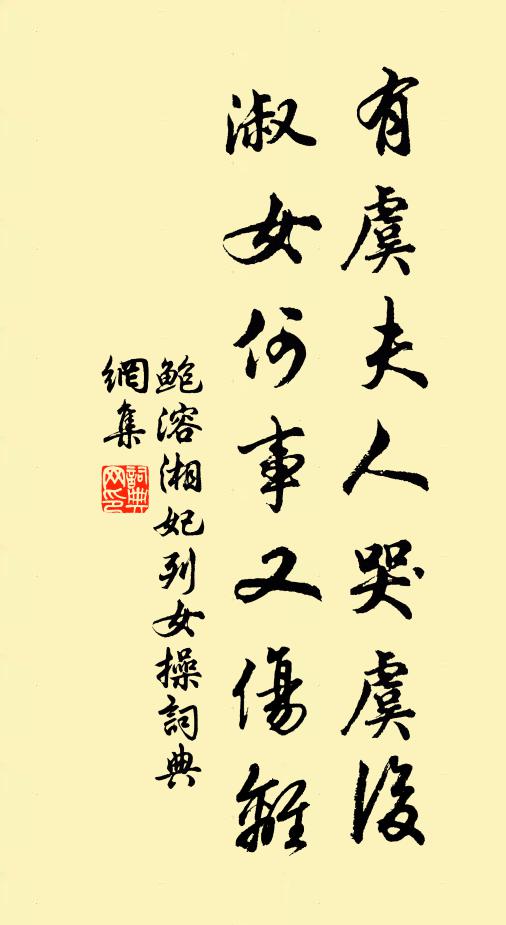 有虞夫人哭虞後
淑女何事又傷離
鮑溶湘妃列女操詞典
網集
詞典
网印